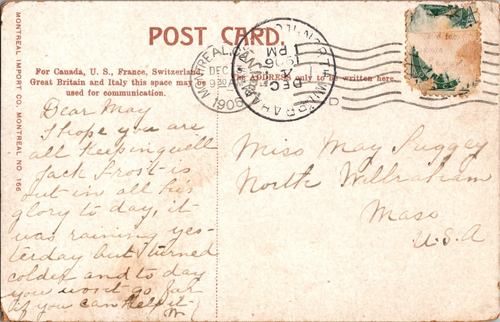 POST CARD.
For Canada, U. S., France, Switzerland
Great Britain and Italy this space may be
used for communication.
ADDRESS only to be written here.
MONTREAL IMPORT CO. MONTREAL NO 166
MONTREAL
DEC
9 30 A
1906
DEC
1 PM
1906
D
Dear May
I hope you are
all keeping well
Jack Frost is
out in all his
glory to day, it
was raining yes-
terday but turned
colder and to day
you wont go far
if you can help it
Miss May
North Wilbraham
Mass
U.S.A